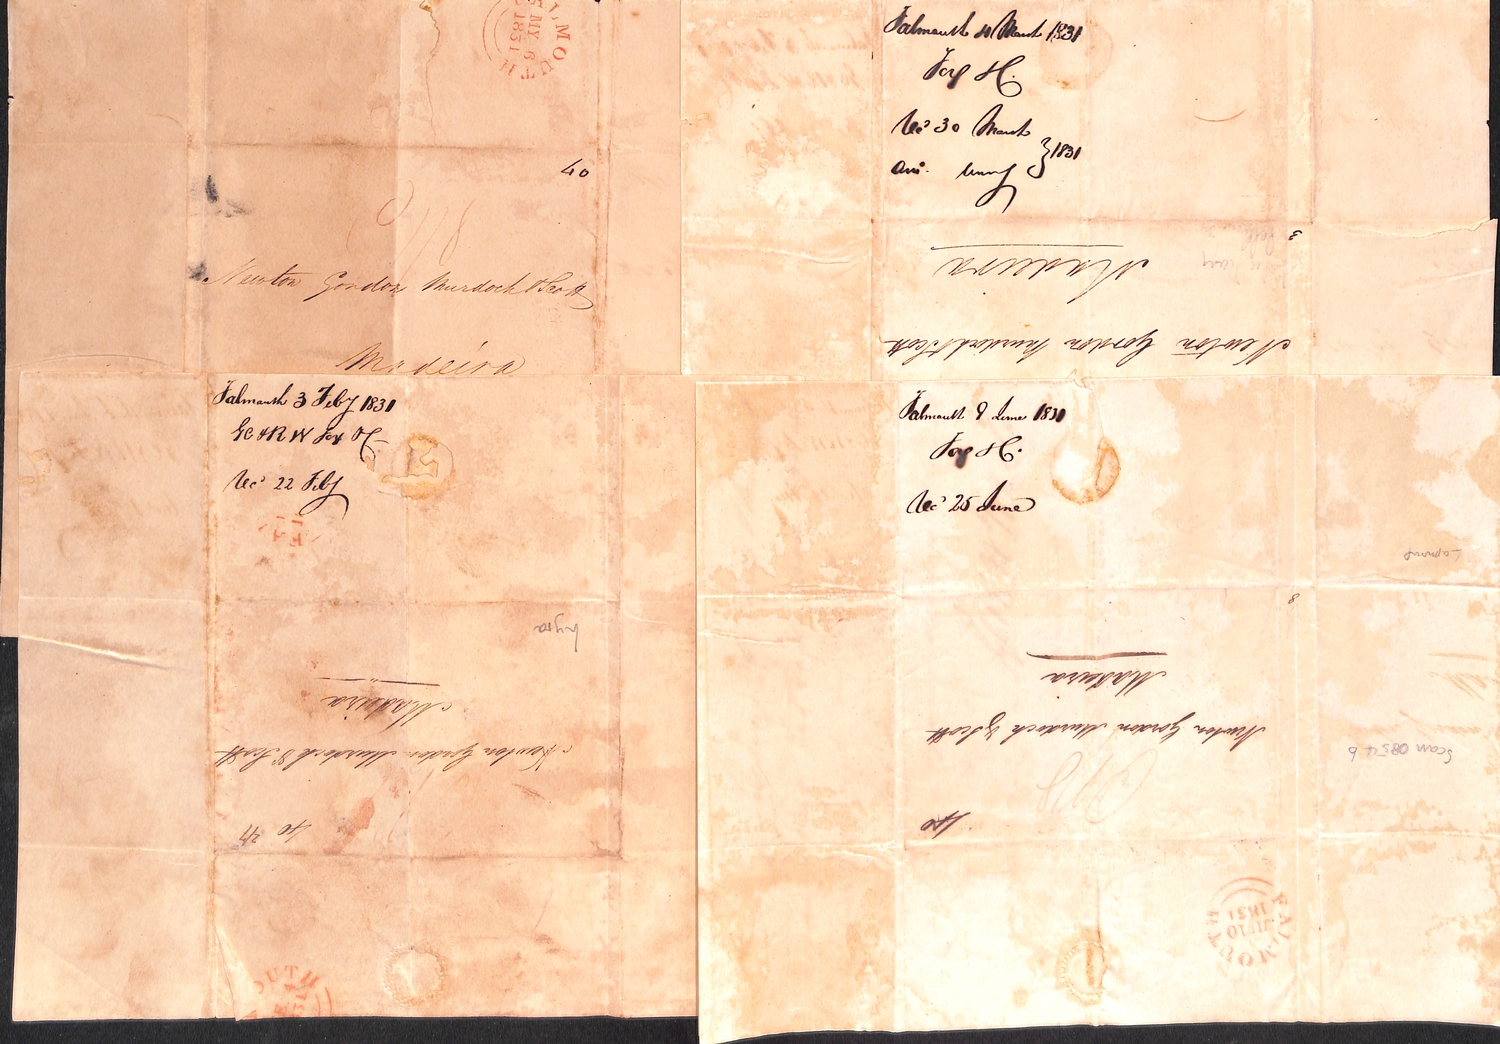 FALMOUTH
MY 6
1831
40
Newton Gordon Murdoch & Scott
Madeira
Falmouth 11 March 1831
Fox & C.
Rec.d 30 March
1831
Madeira
Newton Gordon Murdoch & Scott
Falmouth 3 Feby 1831
G C & R W Fox & C
Rec.d 22 Feby
Lyra
Madeira
Newton Gordon Murdoch & Scott
40
OUTH
Falmouth 8 June 1831
Fox & C.
Rec.d 25 June
8
Madeira
Newton Gordon Murdoch & Scott
Scan 0854 b
40
FALMOUTH
JU 10
1831